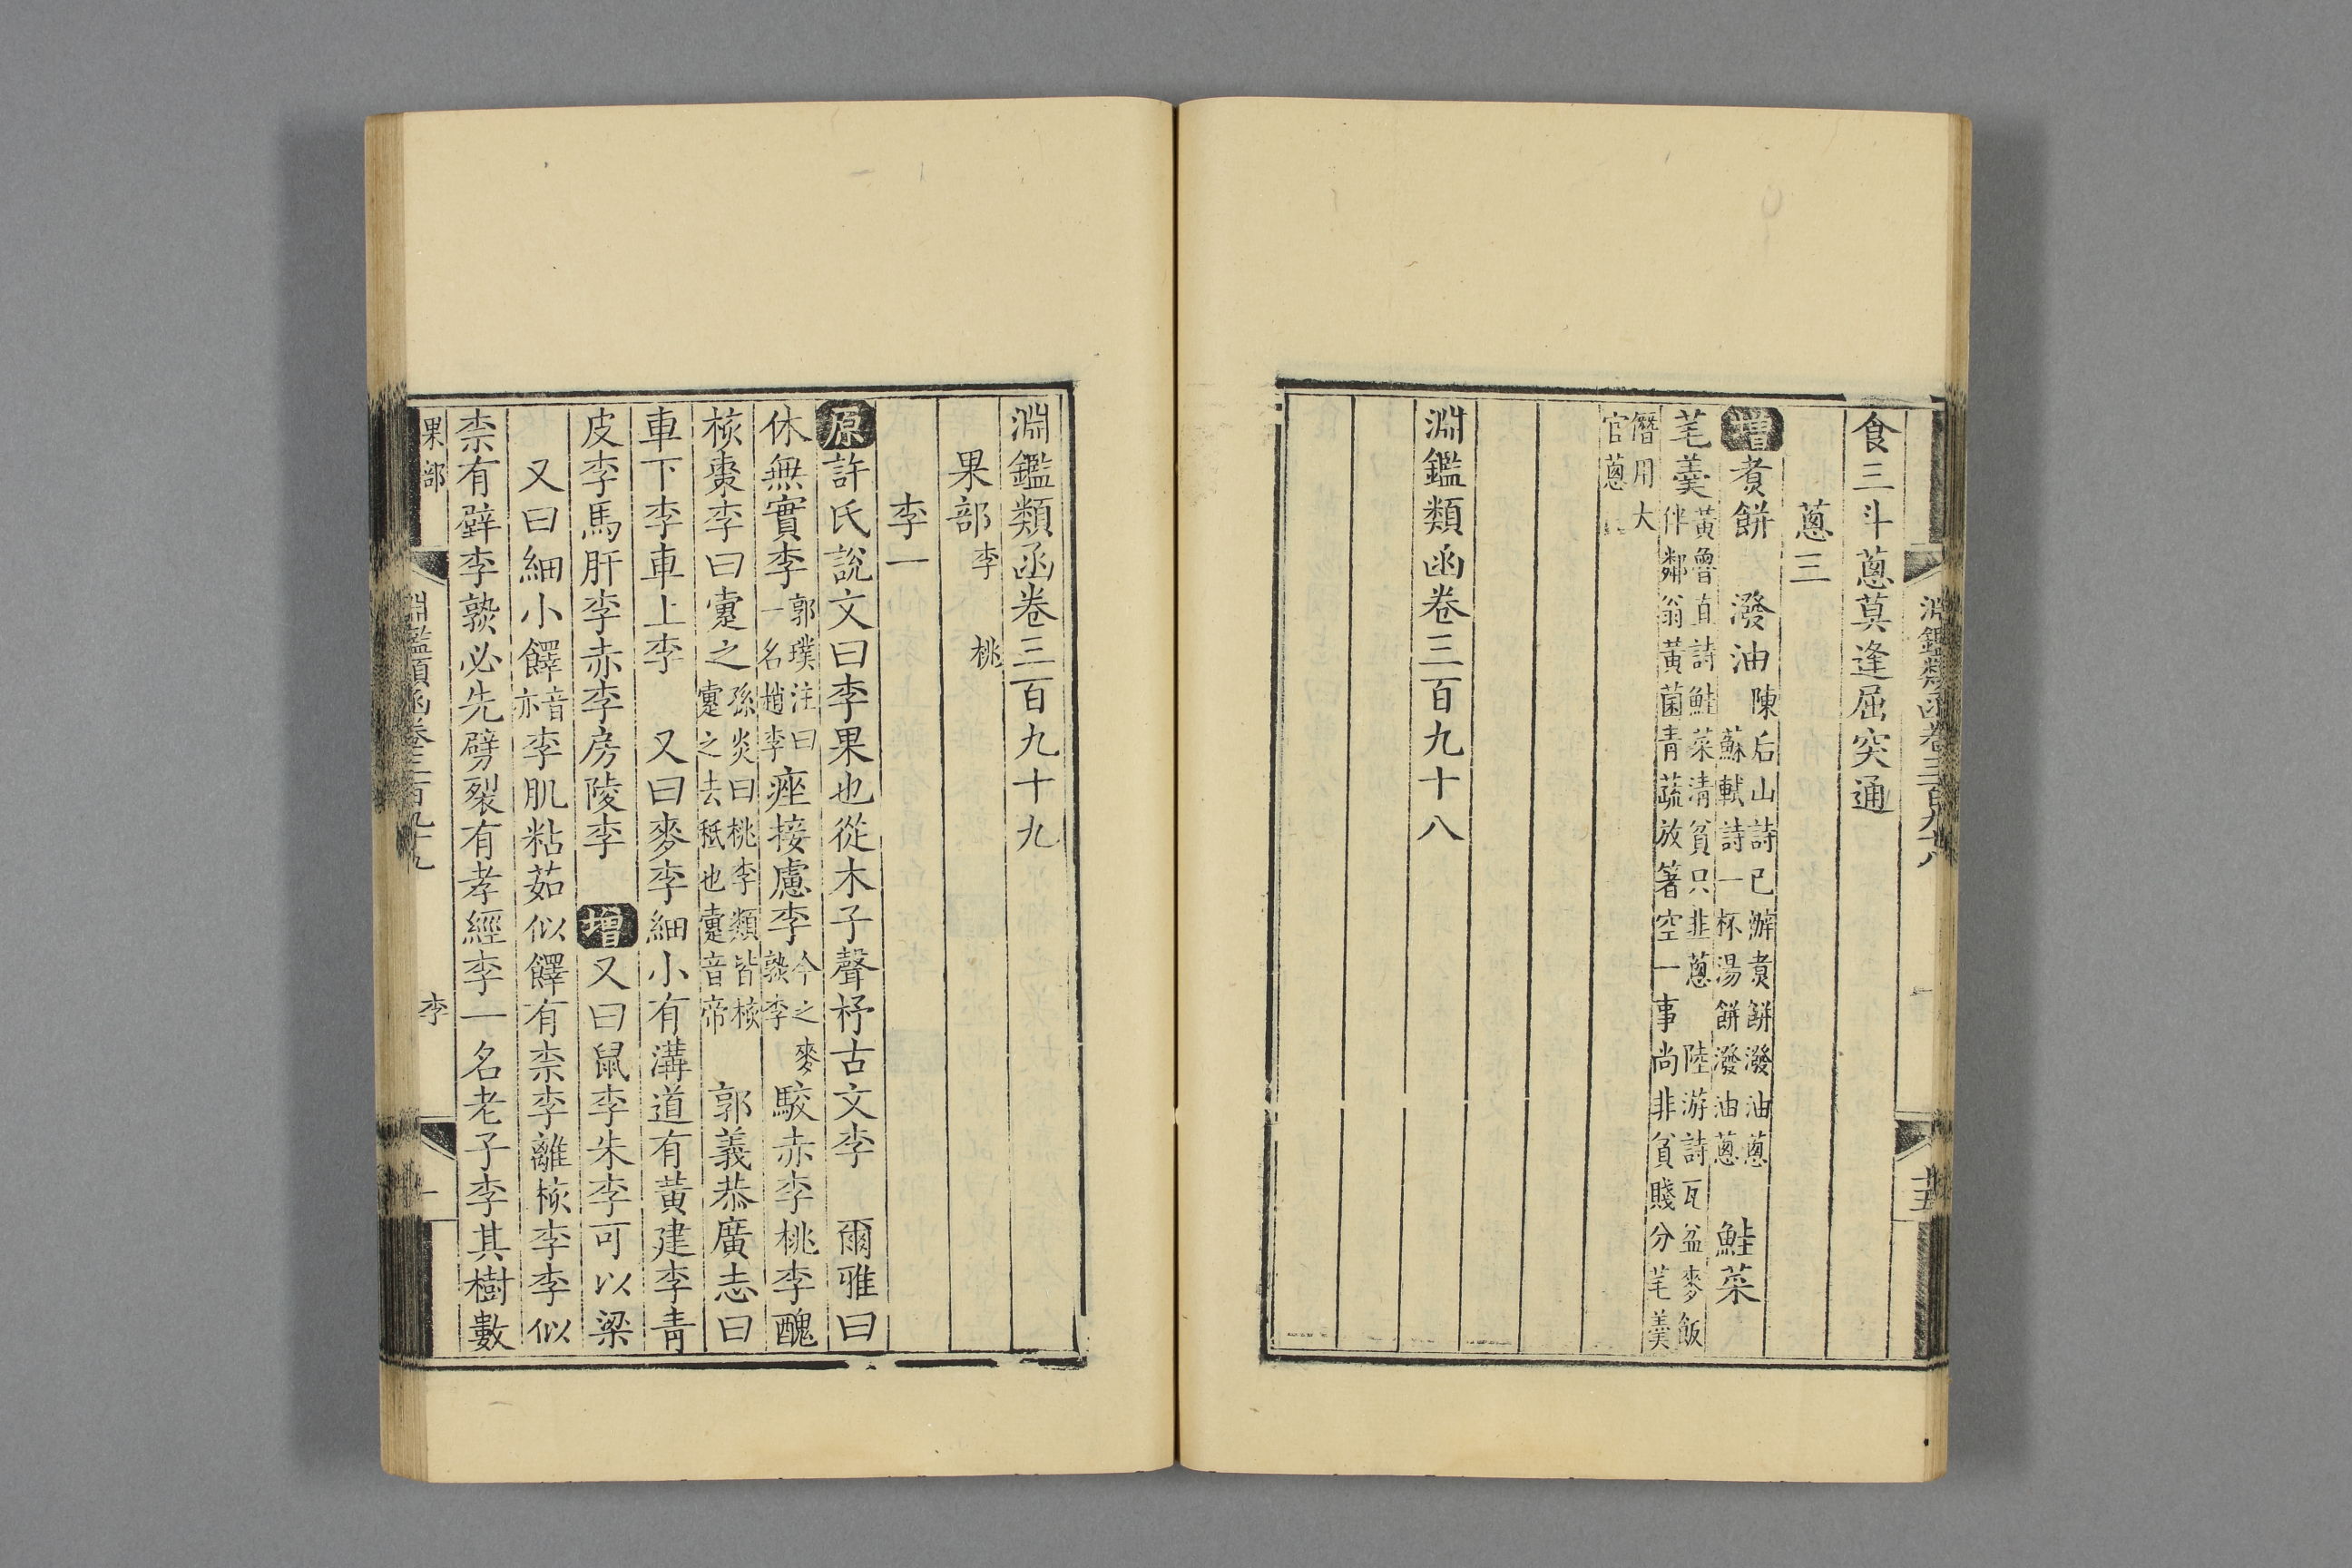 淵鑑類函卷三百九十八
廿五
食三斗蔥莫逢屈突通
蔥三
增煮餅 潑油陳后山詩已辦煮餅潑油蔥 蘇軾詩一杯湯餅潑油蔥 鮭菜
芼羹黃魯直詩鮭菜清貧只韭蔥 陸游詩瓦盆麥飯伴鄰翁黃菌青蔬放箸空一事尚非貧賤分芼羹
僭用大官蔥
淵鑑類函卷三百九十八
淵鑑類函卷三百九十九
果部李 桃
李一
原許氏說文曰李果也從木子聲杍古文李 爾雅曰
休無實李郭璞注曰一名趙李痤接慮李今之麥熟李駮赤李桃李醜
核棗李曰疐之孫炎曰桃李類皆核疐之去柢也疐音帝 郭義恭廣志曰
車下李車上李 又曰麥李細小有溝道有黃建李青
皮李馬肝李赤李房陵李 增又曰鼠李朱李可以梁
又曰細小饆音亦李肌粘茹似饆有柰李離核李李似
柰有劈李熟必先劈裂有孝經李一名老子李其樹數
果部 淵鑑類函卷三百九十九 李 一